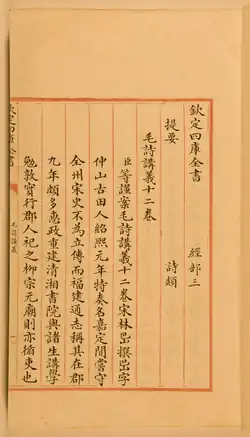 欽定四庫全書 經部三
提要 詩類
毛詩講義十二卷
臣等謹案毛詩講義十二卷宋林岊撰岊字
仲山古田人紹熙元年特奏名嘉定間嘗守
全州宋史不為立傳而福建通志稱其在郡
九年頗多惠政重建清湘書院與諸生講學
勉敦實行郡人祀之柳宗元廟則亦循吏也
欽定四庫全書
毛詩講義